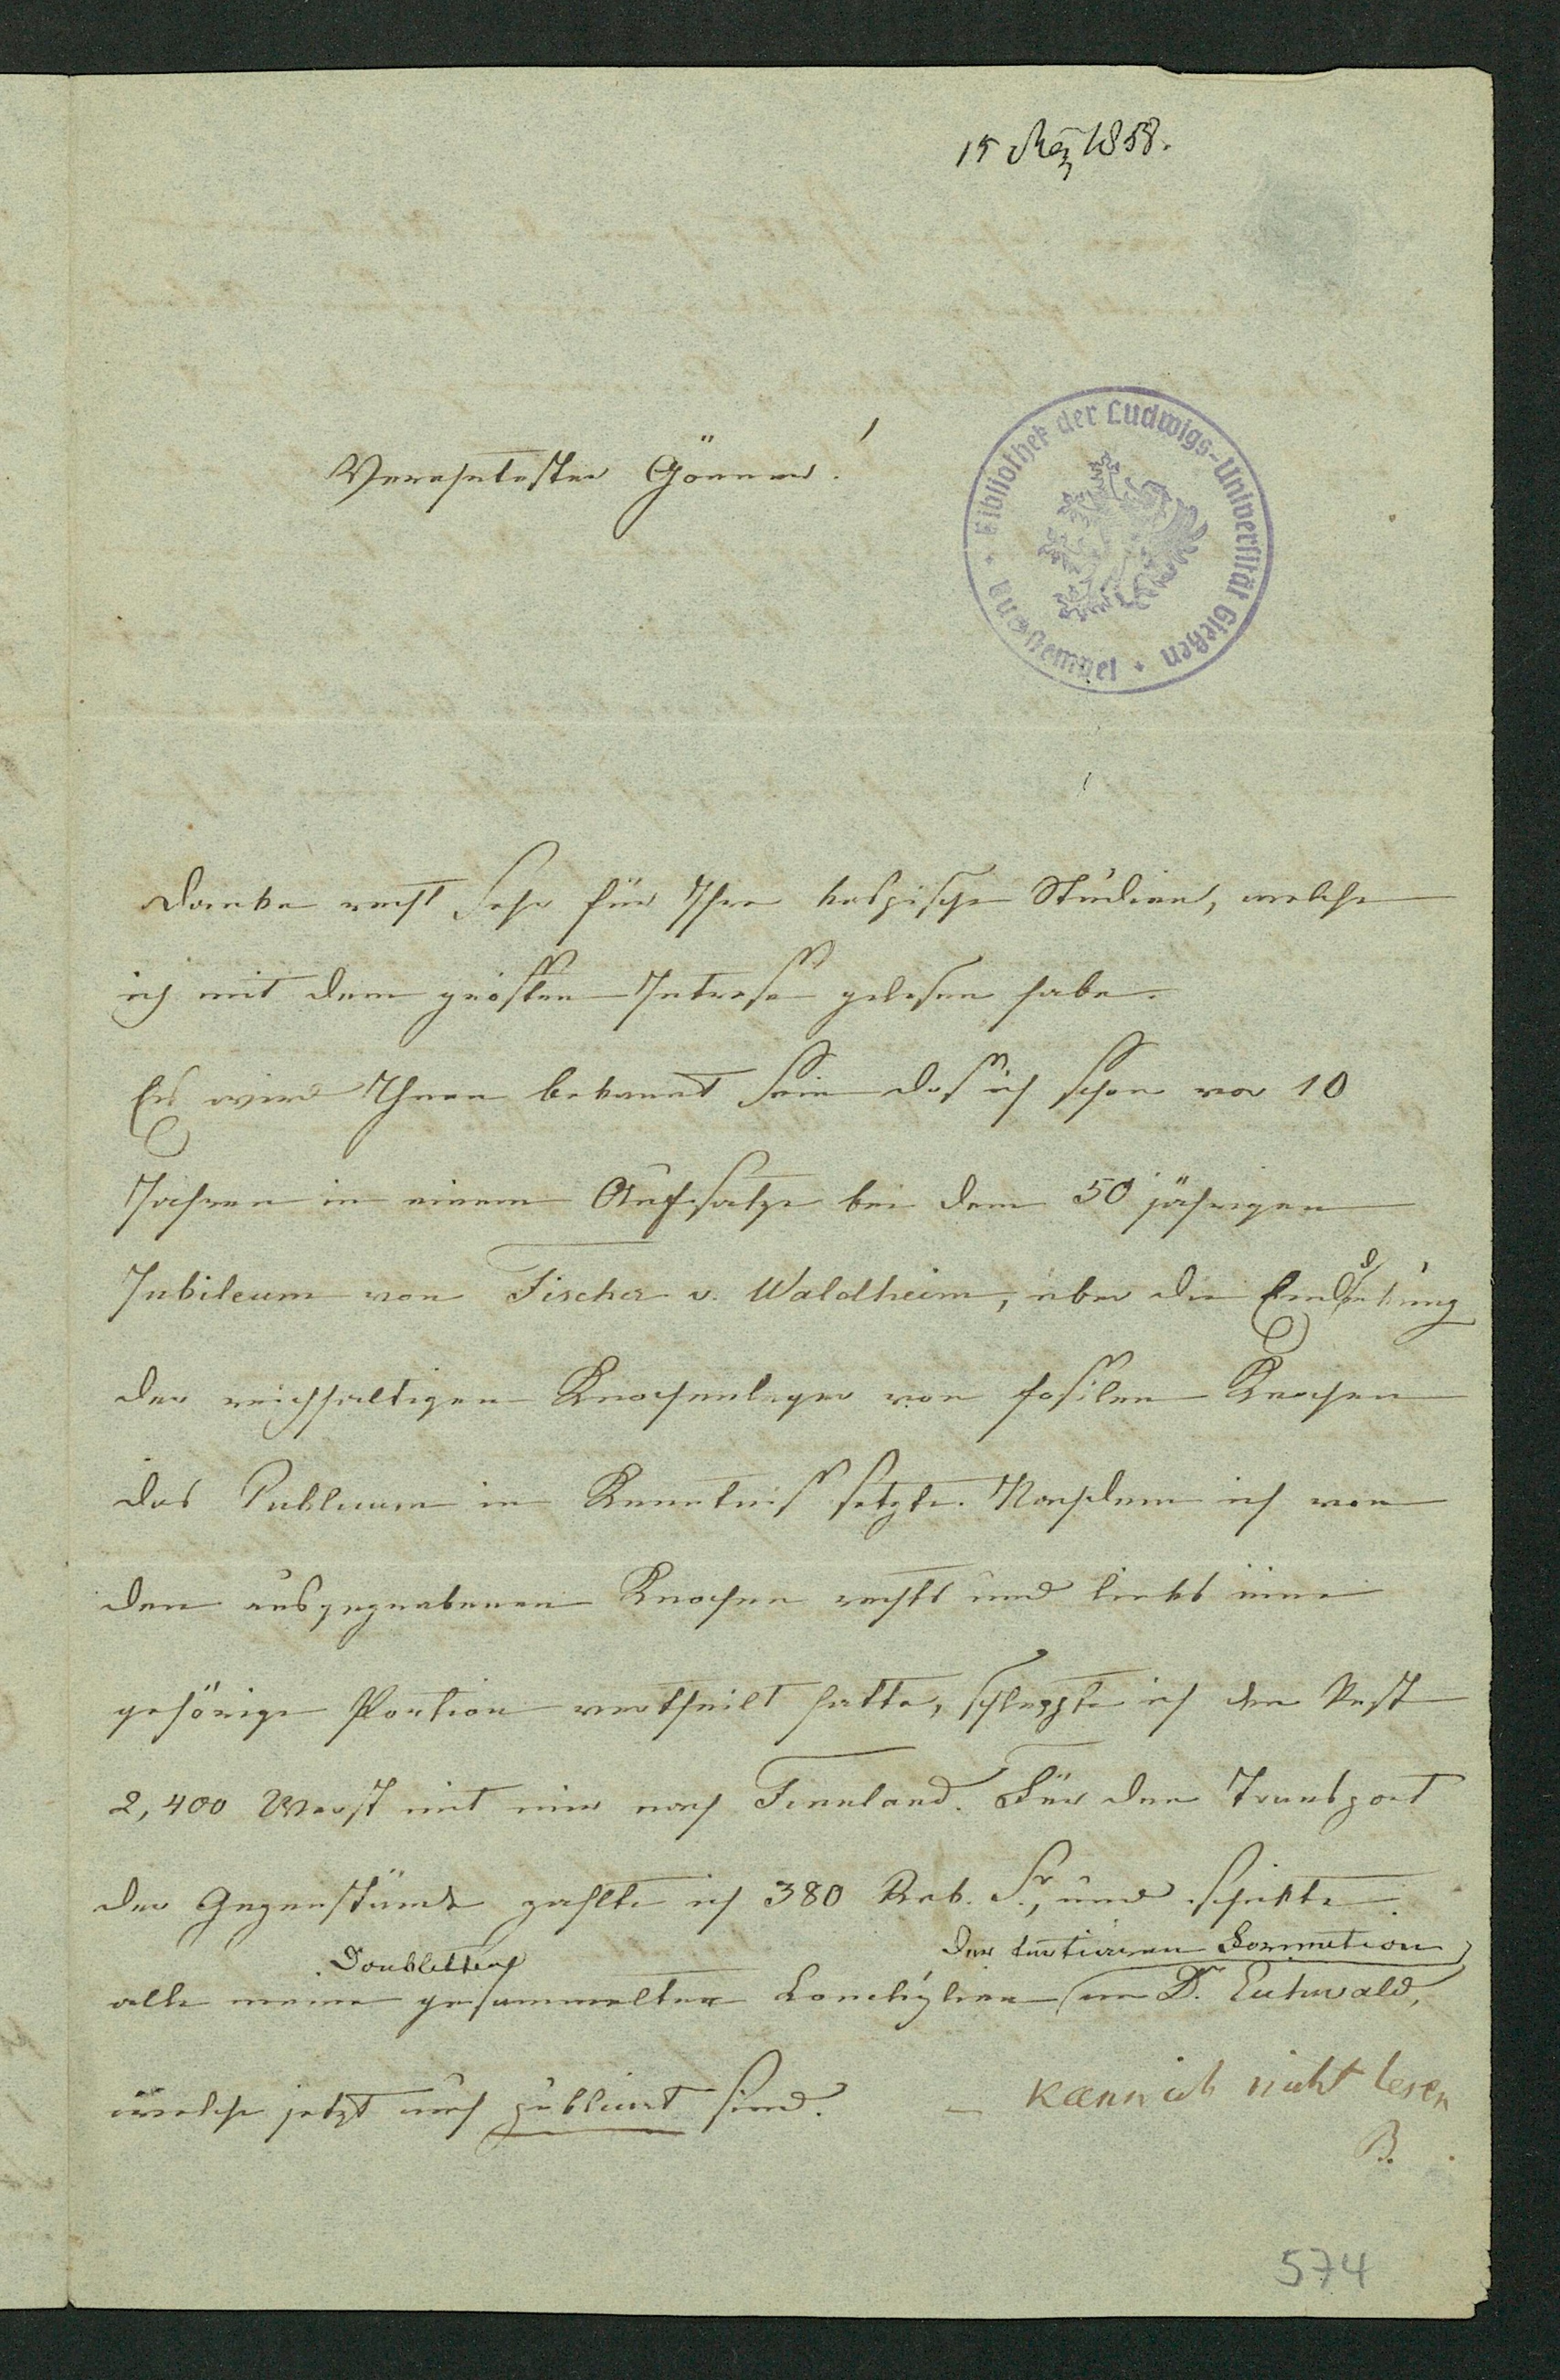 15 Mrz 1858.
Verehrtester Gönner!
Bibliothek der Ludwigs-Universität Gießen
Danke recht sehr für Ihre kaspische Studien, welche
ich mit dem grösten Intresse gelesen habe.
Es wird Ihnen bekannt sein daß ich schon vor 10
Jahren in einem Aufsatze bei dem 50 jährigen
Jubileum von Fischer v. Waldheim, über die Endeckung
der reichhaltigen Knochenlager von fosilen Knochen
das Publicum in Kenntniß setzte. Nachdem ich von
den ausgegrabenen Knochen rechts und links eine
gehörige Portion vertheilt hatte, schleppte ich den Rest
2,400 Werst mit mir nach Finnland. Für den Transport
der Gegenstände zahlte ich 380 Rub. Sr., und schikte
Doubletten
der tertiären Formation
alle meine gesammelten Conchÿlien an D. Eichwald,
welche jetzt auch publicirt sind.
– Kann ich nicht lesen
B.
574